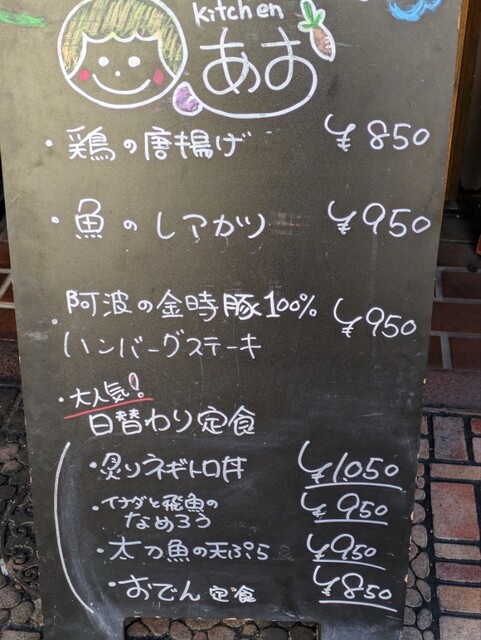 kitchen
あお
・鶏の唐揚げ ¥850
・魚のレアカツ ¥950
・阿波の金時豚100%
ハンバーグステーキ ¥950
・大人気!
日替わり定食
・炙りネギトロ丼 ¥1,050
・イナダと飛魚の
なめろう ¥950
・太刀魚の天ぷら ¥950
・おでん定食 ¥850